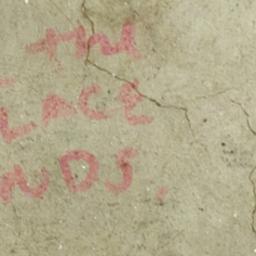 the
LACE
NDS.